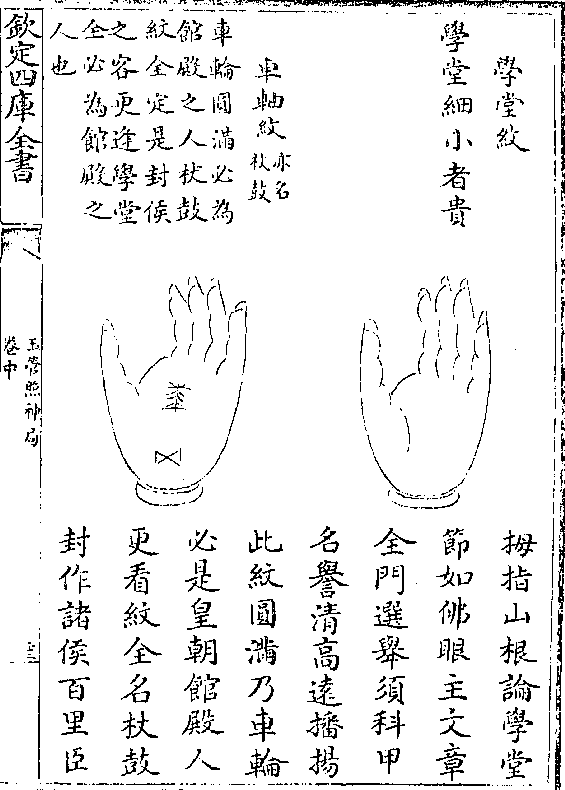 學堂紋
學堂細小者貴
車軸紋亦名杖鼓
車輪圓滿必為
館殿之人杖鼓
紋全定是封侯
之容更逢學堂
全必為館殿之
人也
拇指山根論學堂
節如佛眼主文章
全門選舉須科甲
名譽清高遠播揚
此紋圓滿乃車輪
必是皇朝館殿人
更看紋全名杖鼓
封作諸侯百里臣
欽定四庫全書
玉管照神局
卷中